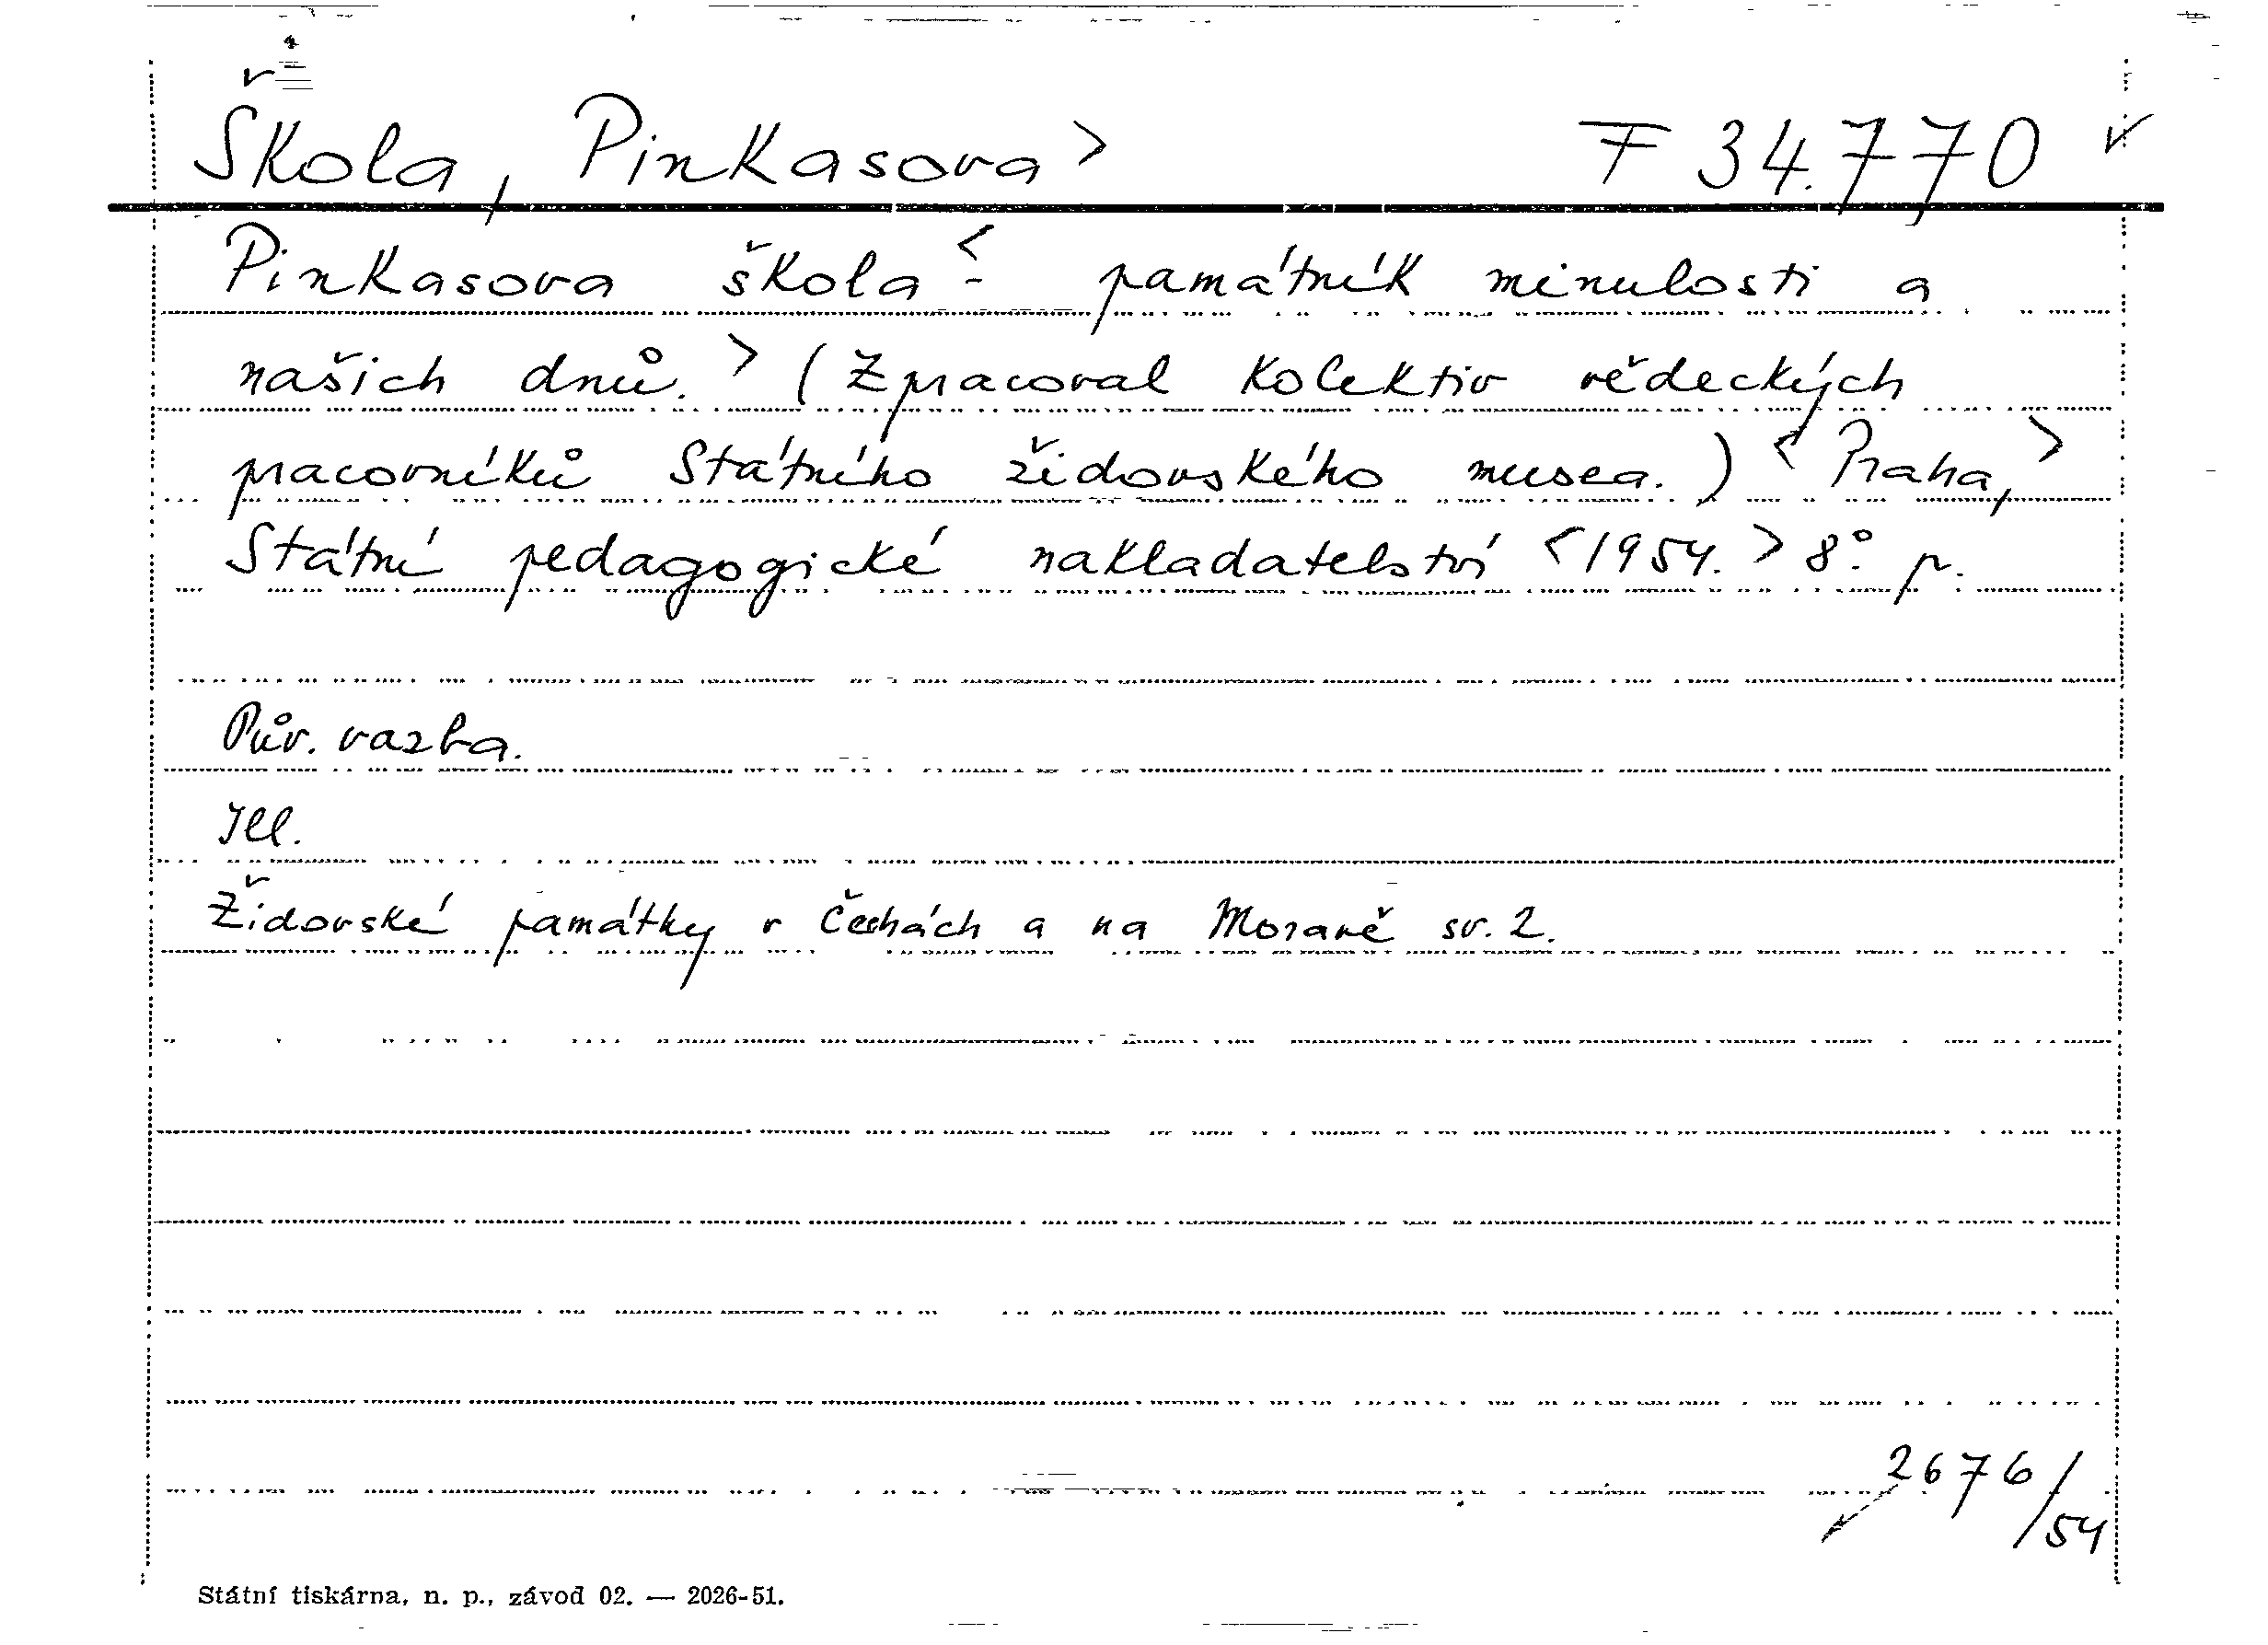 Škola, Pinkasova > F 34.770 v
Pinkasova škola < - památník minulosti a
našich dnů. > (Zpracoval Kolektiv vědeckých
pracovníků Státního židovského musea.) < Praha, >
Státní pedagogické nakladatelství < 1954. > 8°. p.
Pův. vazba.
Ill.
Židovské památky v Čechách a na Moravě sv. 2.
2676/54
Státní tiskárna, n. p., závod 02. — 2026-51.